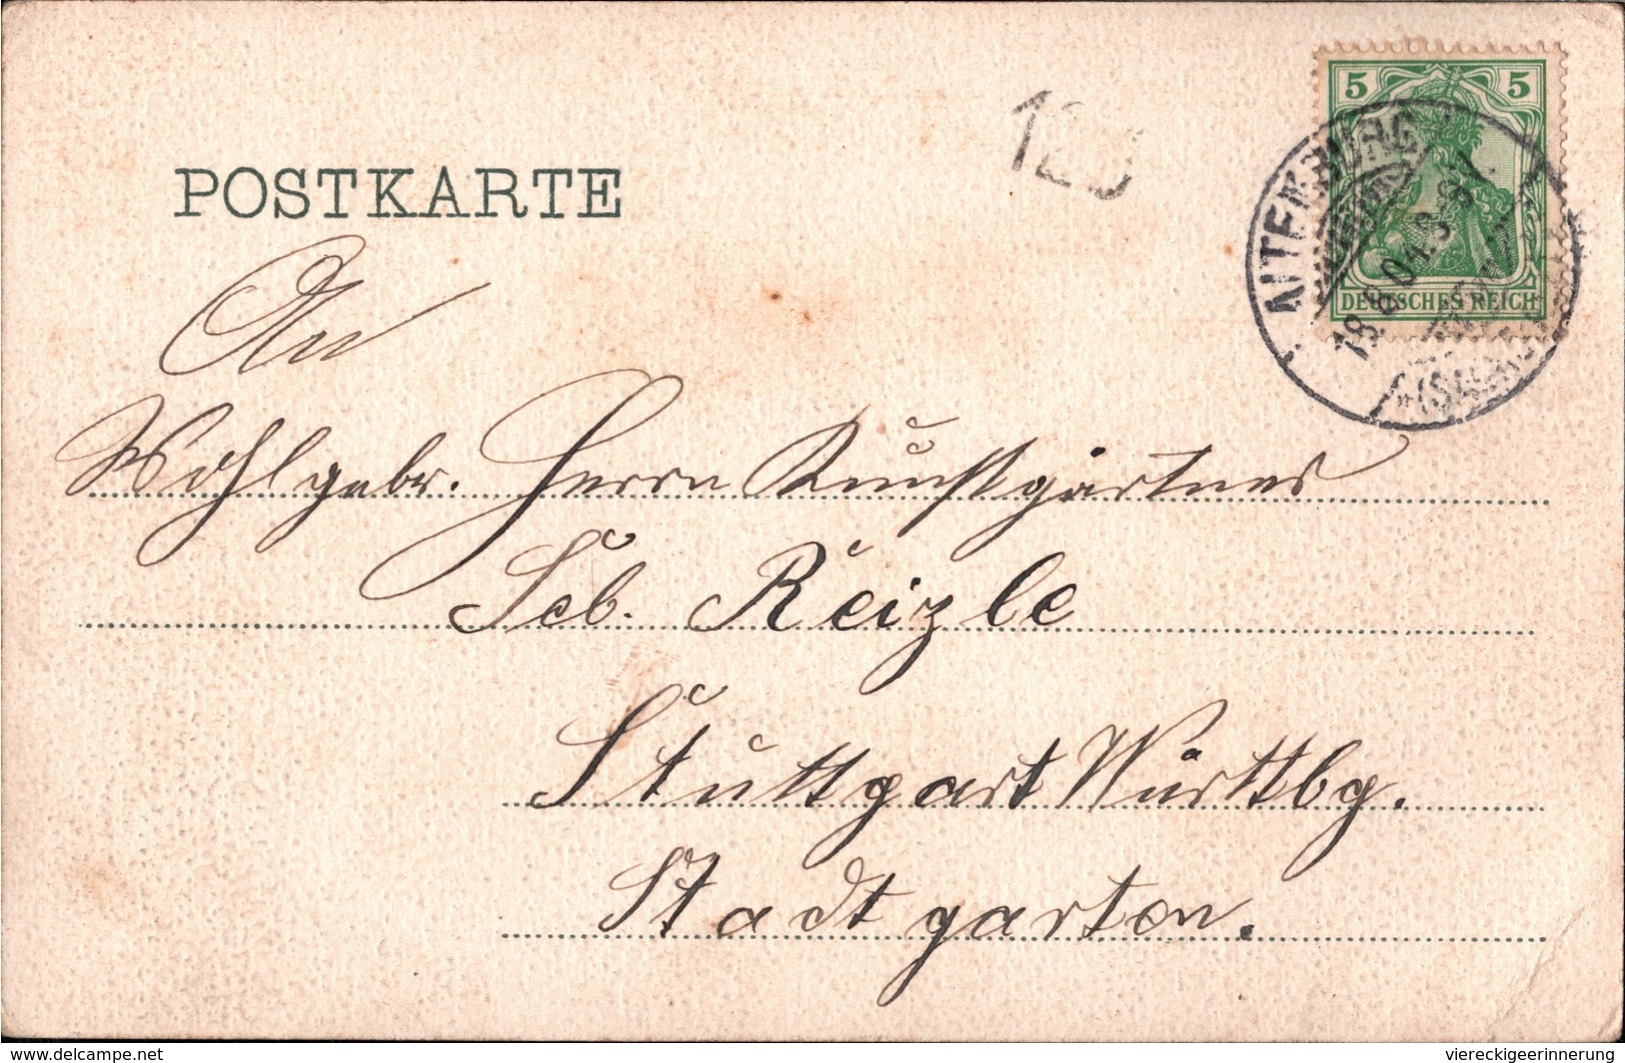 POSTKARTE
5 5
DEUTSCHES REICH
ALTENBURG
18.8.04.8-9V.
An
Wohlgebr. Herrn Kunstgärtner
Seb. Reizle
Stuttgart Württbg.
Stadtgarten.
www.delcampe.net
viereckigeerinnerung